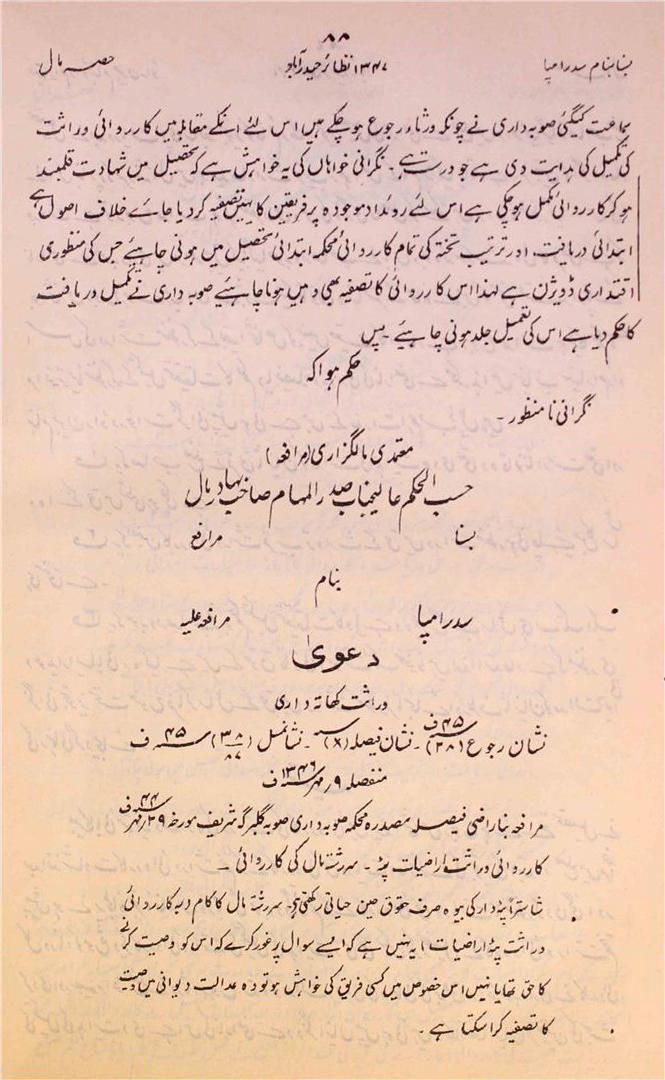 ۸۸
بسنا بنام سدرامپا
۱۳۴۷ نظائر حیدرآباد
حصہ مال
سماعت کیگئی صوبہ داری نے چونکہ ورثاء رجوع ہوچکے ہیں اس لئے انکے مقابلہ میں کارروائی وراثت
کی تکمیل کی ہدایت دی ہے جو درست ہے ۔ نگرانی خواہاں کی یہ خواہش ہے کہ تحصیل میں شہادت قلمبند
ہو کر کارروائی مکمل ہوچکی ہے اس لئے روئداد موجودہ پر فریقین کا یہیں تصفیہ کردیا جائے خلاف اصول ہے
ابتدائی دریافت، اور ترتیب تختہ کی تمام کارروائی محکمہ ابتدائی تحصیل میں ہونی چاہیئے جس کی منظوری
اقتداری ڈویژن ہے لہذا اس کارروائی کا تصفیہ بھی وہیں ہونا چاہئیے صوبہ داری نے تکمیل دریافت
کا حکم دیا ہے اس کی تعمیل جلد ہونی چاہیئے ۔ پس
حکم ہوا کہ
نگرانی نامنظور ۔
معتمدی مالگزاری (مرافعہ)
حسب الحکم عالیجناب صدر المہام صاحب بہادر مال
بسنا
مرافع
بنام
سدرامپا
مرافعہ علیہ
دعویٰ
وراثت کھاتہ داری
نشان رجوع (۲۸۱) ۴۵ف ۔ نشان فیصلہ (۸) ۔ نشانمثل (۳۸/۸۷) ۴۵ف
منفصلہ ۹؍مہر ۱۳۴۶ف
مرافعہ بناراضی فیصلہ مصدرہ محکمہ صوبہ داری صوبہ گلبرگہ شریف مورخہ ۲۹؍مہر ۴۴ف
کارروائی وراثت اراضیات پٹہ ۔ سررشتہ مال کی کارروائی ۔
شاستراً پٹہ دار کی بیوہ صرف حقوق حین حیاتی رکھتی ہے۔ سررشتہ مال کا کام در بہ کارروائی
وراثت پٹہ اراضیات) یہ نہیں ہے کہ ایسے سوال پر غور کرے کہ اس کو وصیت کرنے
کا حق تھا یا نہیں اس خصوص میں کسی فریق کی خواہش ہو تو وہ عدالت دیوانی میں وصیت
کا تصفیہ کراسکتا ہے ۔